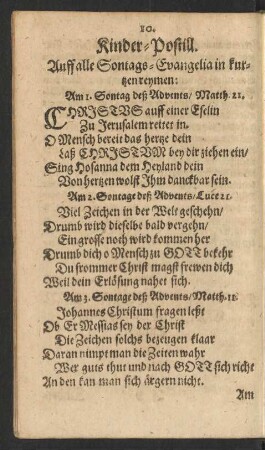 10.
Kinder-Postill.
Auff alle Sontags-Evangelia in kur-
tzen reymen:
Am 1. Sontag deß Advents/ Matth. 21.
CHRISTVS auff einer Eselin
Zu Jerusalem reitet in.
O Mensch bereit das hertze dein
Laß CHRISTVM bey dir ziehen ein/
Sing Hosanna dem Heyland dein
Von hertzen wolst Ihm danckbar sein.
Am 2. Sontage deß Advents/ Luce 21.
Viel Zeichen in der Welt geschehn/
Drumb wird dieselbe bald vergehn/
Ein grosse noch wird kommen her
Drumb dich o Mensch zu GOTT bekehr
Du frommer Christ magst frewen dich
Weil dein Erlösung nahet sich.
Am 3. Sontage deß Advents/ Matth. 11.
Johannes Christum fragen leßt
Ob Er Messias sey der Christ
Die Zeichen solchs bezeugen klaar
Daran nimpt man die Zeiten wahr
Wer guts thut und nach GOTT sich richt
An den kan man sich ärgern nicht.
Am